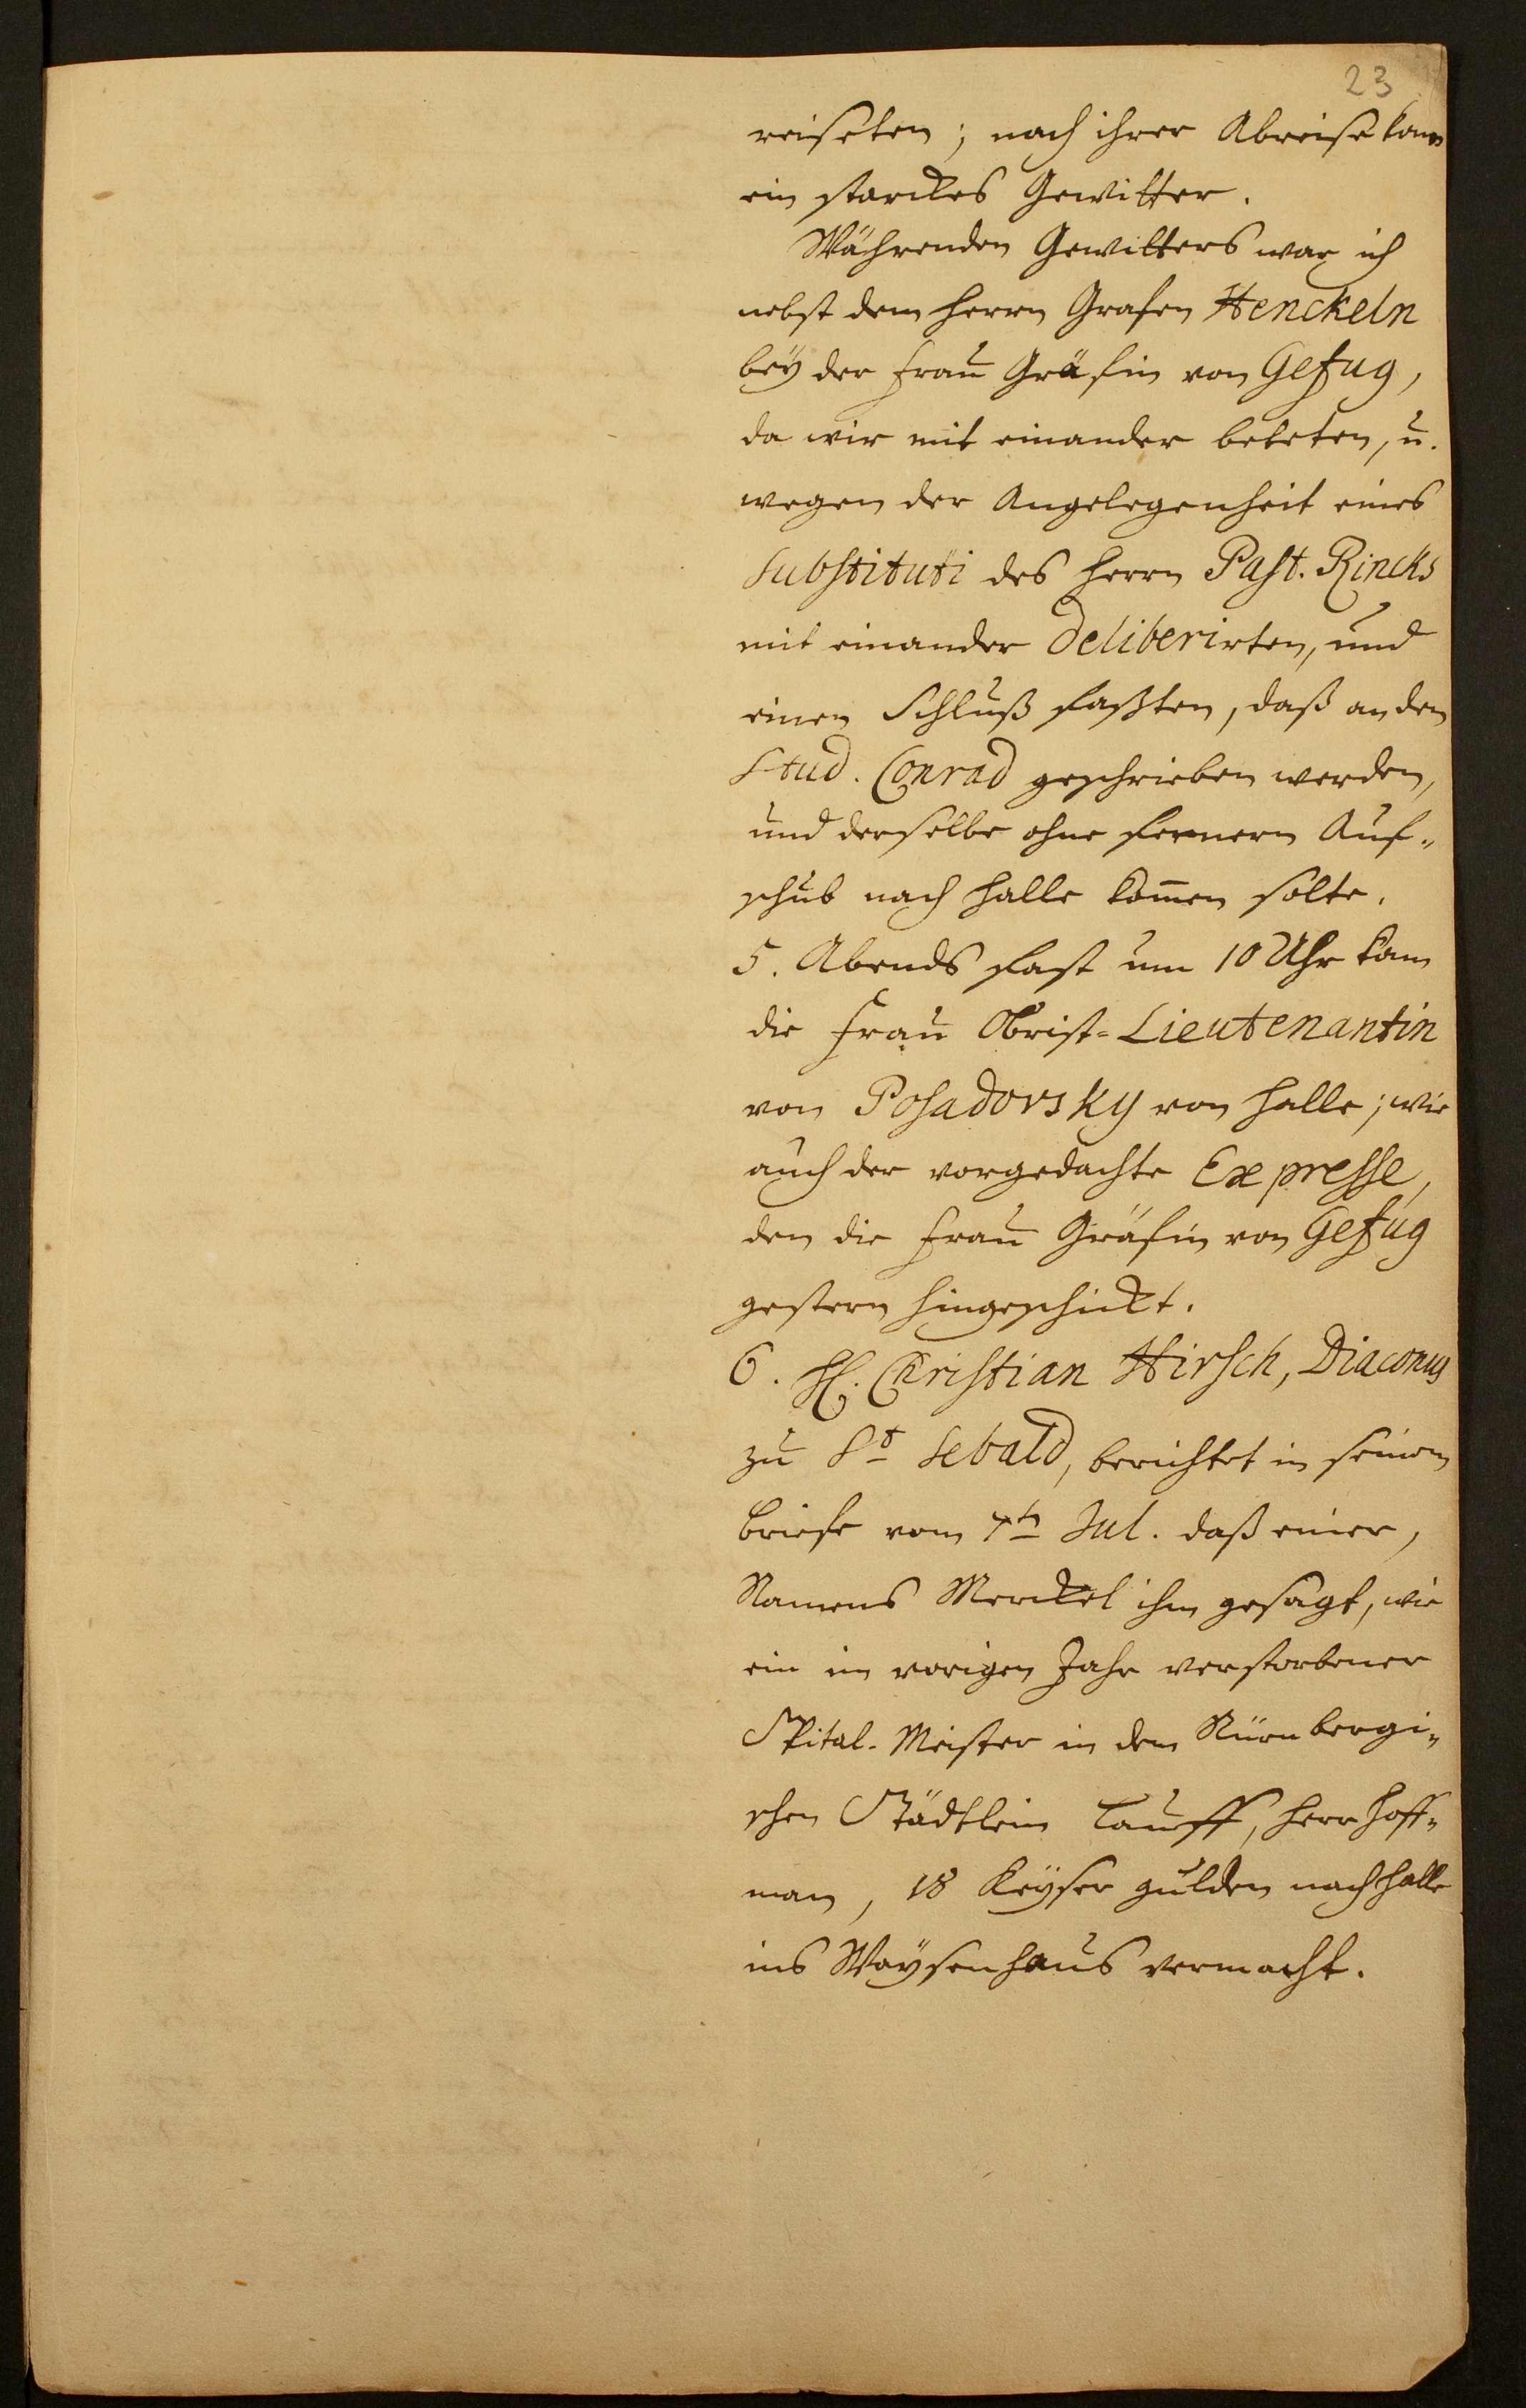 23
reiseten; nach ihrer Abreise kam
ein starckes Gewitter.
Währenden Gewitters war ich
nebst dem Herrn Grafen Henckeln
bey der Frau Gräfin von Gefug,
da wir mit einander beteten, u.
wegen der Angelegenheit eines
Substituti des Herrn Past. Rincks
mit einander deliberirten, und
einen Schluß faßten, daß an den
Stud. Conrad geschrieben werden,
und derselbe ohne fernern Auf-
schub nach Halle kom̄en solte.
5. Abends fast um 10 Uhr kam
die Frau Obrist-Lieutenantin
von Posadovsky von Halle; wie
auch der vorgedachte Expresse,
den die Frau Gräfin von Gefug
gestern hingeschickt.
6. H. Christian Hirsch, Diaconus
zu St Sebald, berichtet in seinem
Briefe vom 7tn Jul. daß einer,
Namens Merckel ihm gesagt, wie
ein im vorigen Jahr verstorbener
Spital-Meister in dem Nürnbergi-
schen Städtlein Lauff, Herr Hoff-
man, 18 Keyser gulden nach Halle
ins Waysenhaus vermacht.